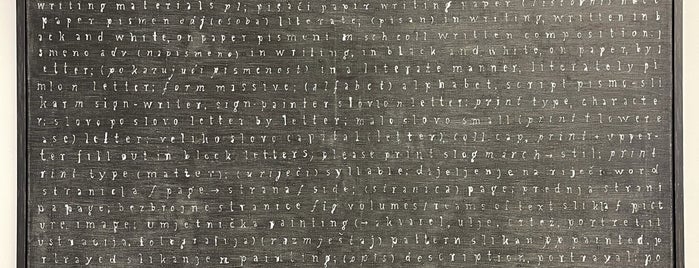 writing materials pl; pisaći papir writing paper
paper pismen adj (osoba) literate, (pisan) in writing, written in bl
ack and white, on paper pismeni m school written composition;
smeno adv (napismeno) in writing, in black and white, on paper, by l
etter; (pokazujući pismenost) in a literate manner, literately pi
smo n letter; form massive; (alfabet) alphabet, script pismo-slik
ar m sign-writer; sign-painter slovo n letter; print type, characte
r; slovo po slovo letter by letter; malo slovo small (print lowerc
ase) letter; veliko slovo capital (letter), coll cap, print upper-
ter fill out in block letters, please print slog m arch → stil; print
print type (matter); (u riječi) syllable; dijeljenje na riječi word
stranica f page → strana / side; (stranica) page; prednja strani
pa page; bezbrojne stranice fig volumes/reams of text slika f pict
ure, image; umjetnička painting (→ akvarel, ulje, crtež, portret, il
ustracija, fotografija) (razmještaj) pattern slikan pp painted, po
rtrayed slikanje n painting; (opis) description, portrayal; po